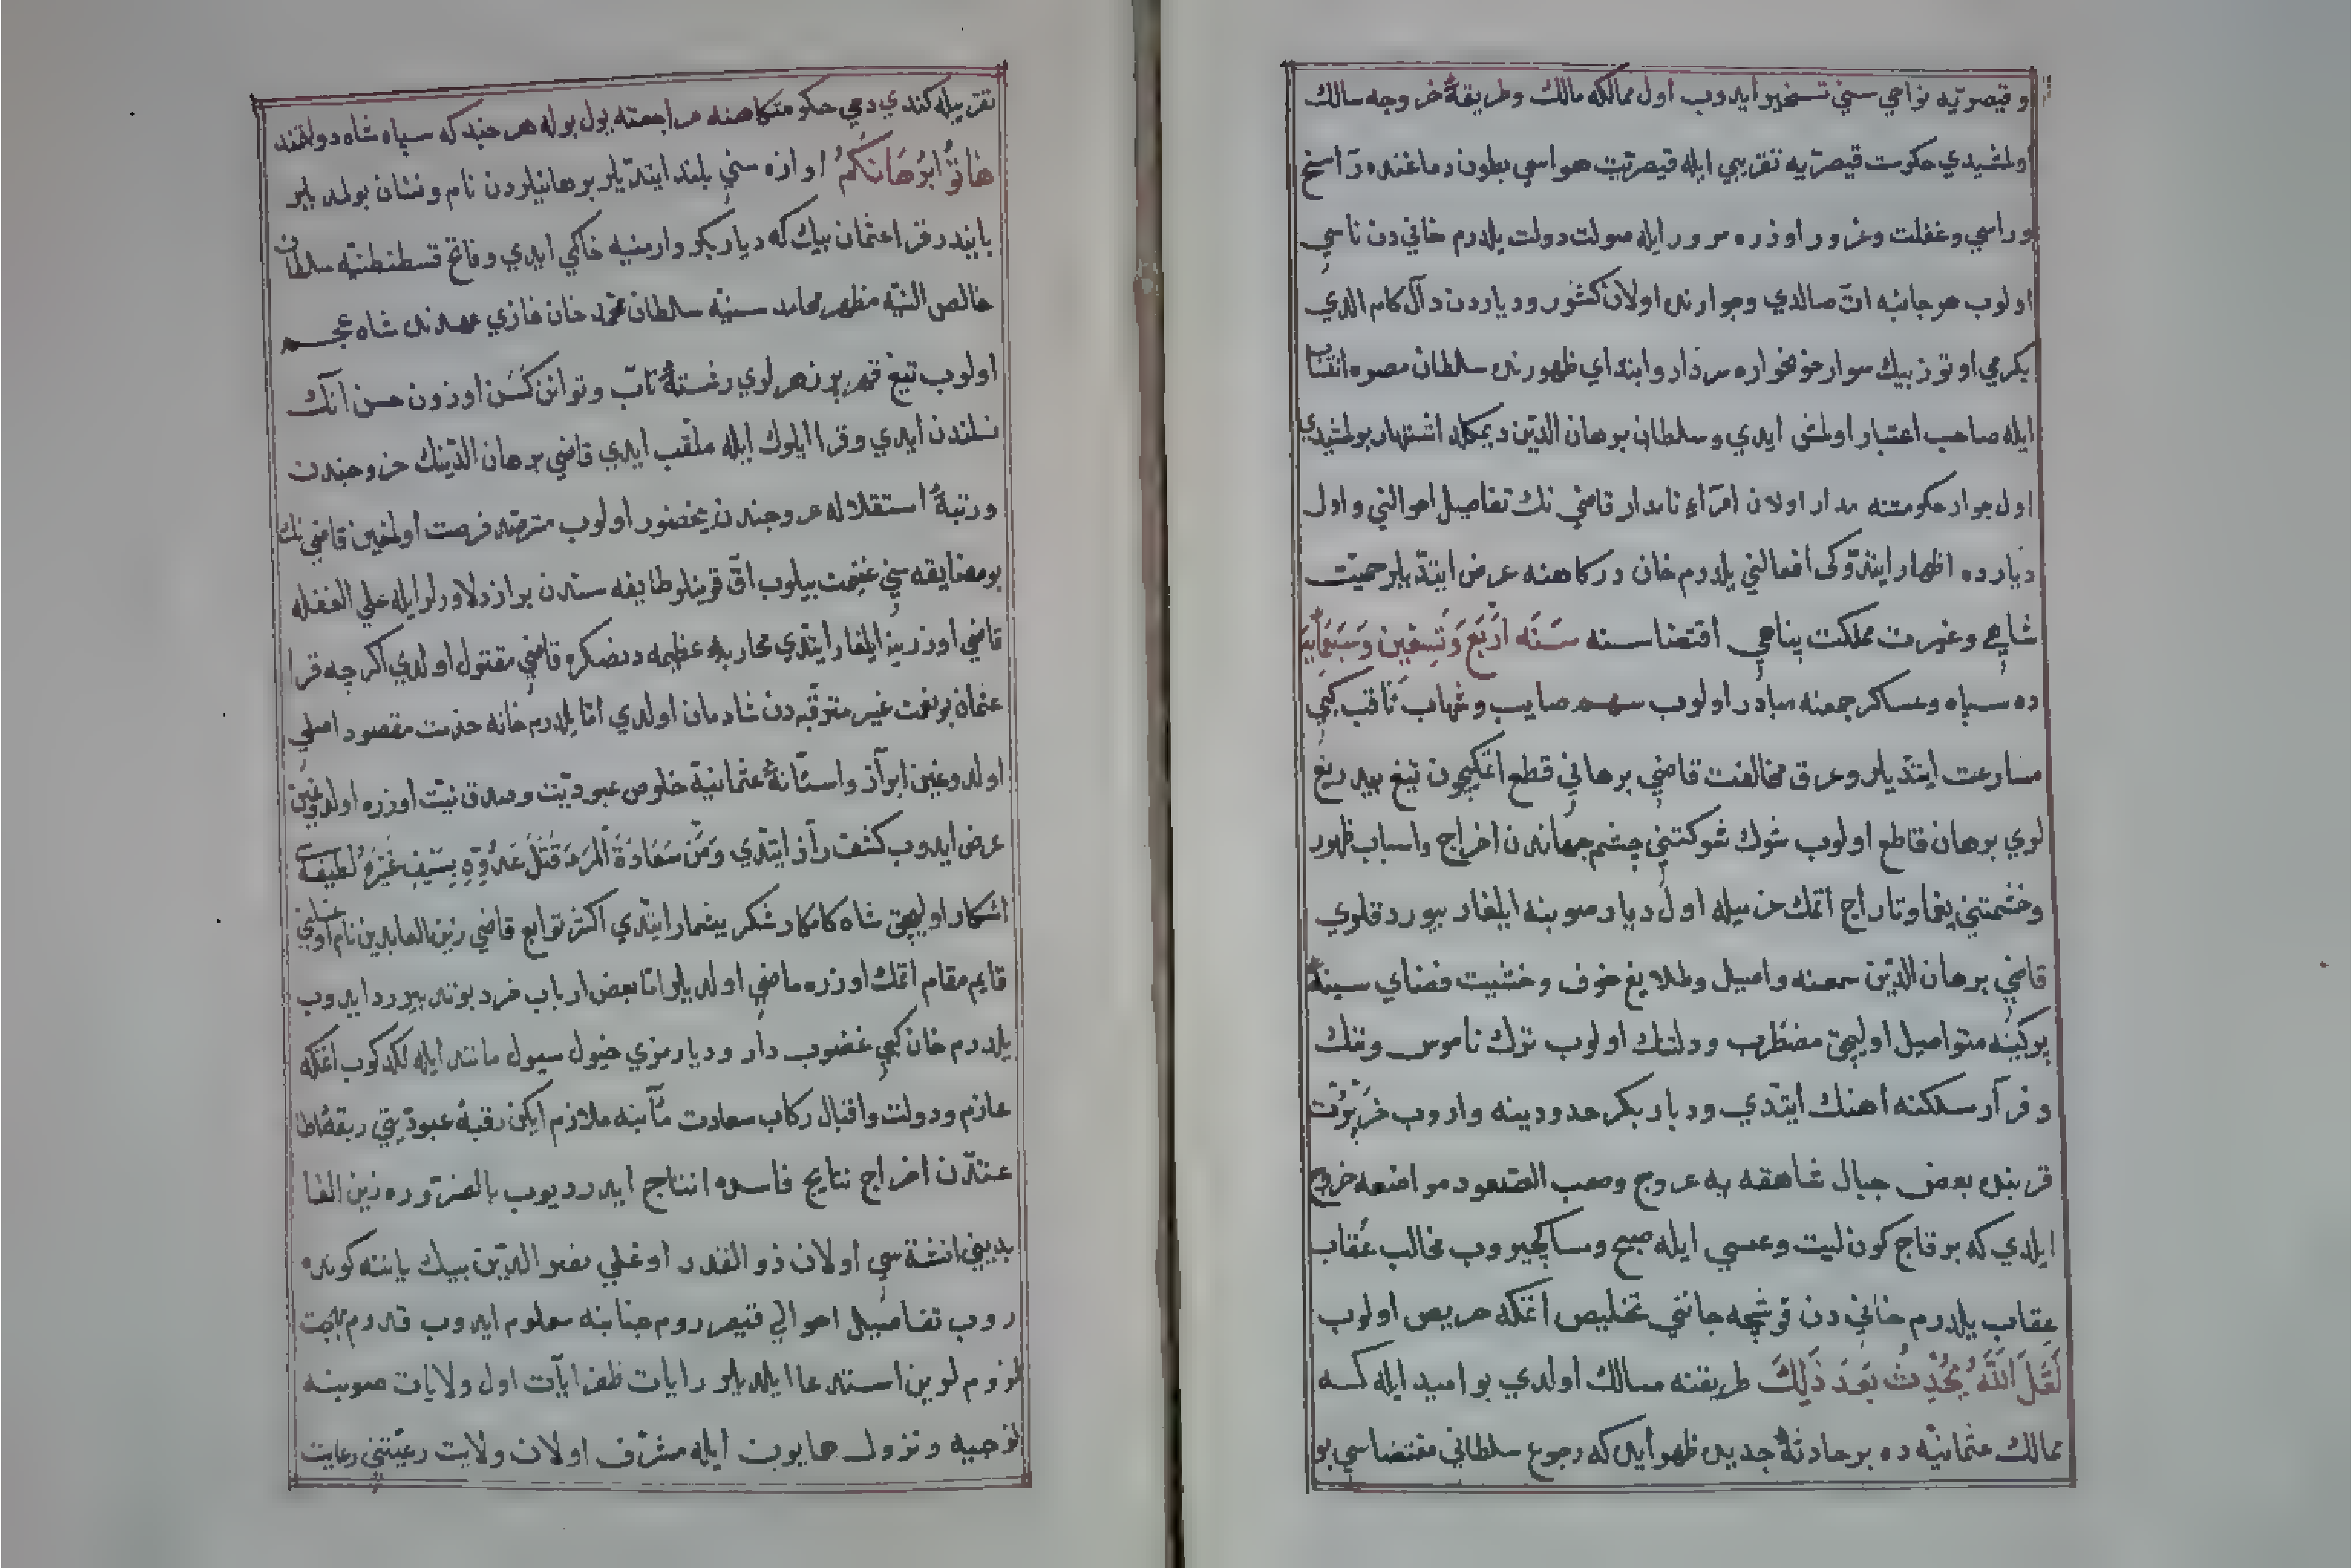 و قیصریه نواحی سنی تسخیر ایدوب اول ممالکه مالك و طریقهٔ خروجه سالك
اولمشیدی حکومت قیصریه تقریبی ایله قیصریت هواسی بطون دماغنده راسخ
وراسی و غفلت و غرور اوزره مرور ایله صولت دولت یلدرم خانی دن ناسی
اولوب هر جانبه ات صالدی و جوارنده اولان کشور و دیاردن دآل کام الدی
یکرمی اوتوز بیك سوار خونخواره سردار و ابتدای ظهورنده سلطان مصره انتساب
ایله صاحب اعتبار اولمش ایدی و سلطان برهان الدین دیمکله اشتهار بولمشیدی
اول جوار حکومتنه مدار اولان امرآء نامدار قاضی نك تفاصیل احوالنی و اول
دیارده اظهار ایتدوکی افعالنی یلدرم خان درکاهنه عرض ایتدیلر حمیت
شاهی و غیرت مملکت پناهی اقتضاسنه سَنَه اَرْبَع وَتِسْعِین وَسَبَعمِأیه
ده سپاه و عساکر جمعنه مبادر اولوب سهم صایب و شهاب ثاقب کبی
مسارعت ایتدیلر و عرق مخالفت قاضی برهانی قطع اتمکیچون تیغ بیدریغ
لری برهان قاطع اولوب شوك شوکتنی چشم جهاندن اخراج و اسباب ظهور
و خشمتنی یغما و تاراج اتمك عزمیله اول دیار صوبنه ایلغار بیوردقلری
قاضی برهان الدین سمعنه واصیل و طلایع خوف و خشیت فضای سینهٔ
پرکینه متواصیل اولیجق مضطرب و دلتنك اولوب ترك ناموس و ننك
و فرآر سلکنه اهنك ایتدی و دیار بکر حدودینه واروب خَرْپُرْت
قربنده بعض جبال شاهقه یه عروج و صعب الصعود مواضعه خروج
ایلدی که بر قاج کون لیت و عسی ایله صبح و مسا کچیروب مخالب عُقاب
عِقاب یلدرم خانی دن قوشجه جاننی تخلیص اتمکه حریص اولوب
لَعَلَّ اللّٰهَ یُحْدِثُ بَعْدَ ذَلِكَ طریقنه سالك اولدی بو امید ایله که
ممالك عثمانیه ده بر حادثهٔ جدیده ظهور ایده که رجوع سلطانی مقتضاسی بو
تقریبیله کندی دخی حکومتکاهنه مراجعته یول بوله هر چند که سپاه شاه دولتمند
هَاتُوا بُرْهَانَکُمْ اوازه سنی بلند ایتدیلر برهانیلردن نام و نشان بولمدیلر
بایندر قرا عثمان بیك که دیار بکر و ارمنیه حاکمی ایدی و فاتح قسطنطنیه سلطان
خالص النیه مظهر محامد سنیه سلطان محمد خان غازی عهدنده شاه عجم
اولوب تیغ قهر پر زهرلری رشتهٔ تاب و توانن کسن اوزون حسن آنك
نسلندن ایدی و قرا ایلوك ایله ملقب ایدی قاضی برهان الدینك حز و جندن
و رتبهٔ استقلاله عروجندن یحضور اولوب مترصد فرصت اولمغین قاضی نك
بو مضایقه سنی غنیمت بیلوب اق قوینلو طایفه سندن براز دلاورلر ایله علی الغفله
قاضی اوزرینه ایلغار ایتدی محاربهٔ عظیمه دنصکره قاضی مقتول اولدی اکرچه قرا
عثمان بو نعت غیر مترقبه دن شادمان اولدی اما یلدرم خانه خدمت مقصود اصلی
اولدوغین ابرآز و استانهٔ عثمانیه خلوص عبودیت و صدق نیت اوزره اولدوغین
عرض ایدوب کشف رآز ایتدی وَمِنْ سَعَادَةِ الْمَرءِ قَتْلُ عَدُوِّهِ بِسَیْفِ غَیْرِهِ لطیفه سی
اشکار اولیجق شاه کامکار شکر بیشمار ایتدی اکثر توابع قاضی زین العابدین نام اوغلینی
قایم مقام اتمك اوزره ماضی اولدیلر اما بعض ارباب خرد بونده بیررد ایدوب
یلدرم خان کبی غضوب دار و دیارمزی خیول سیول مانند ایله لکدکوب اتمکه
عازم و دولت و اقبال رکاب سعادت مآبنه ملازم ایکن رقبهٔ عبودیتی ربقهٔ اطا
عتندن اخراج نتایج فاسده انتاج ایدر دیوب بالضروره زین العا
بدینی انشته سی اولان ذو القدر اوغلی نصر الدین بیك یاننه کونده
روب تفاصیل احوالی قیصر روم جنابنه معلوم ایدوب قدوم بهجت
لزوم لرین استدعا ایلدیلر رایات ظفر آیات اول ولایات صوبنه
توجیه و نزول همایون ایله مشرف اولان ولایت رعیتنی رعایت